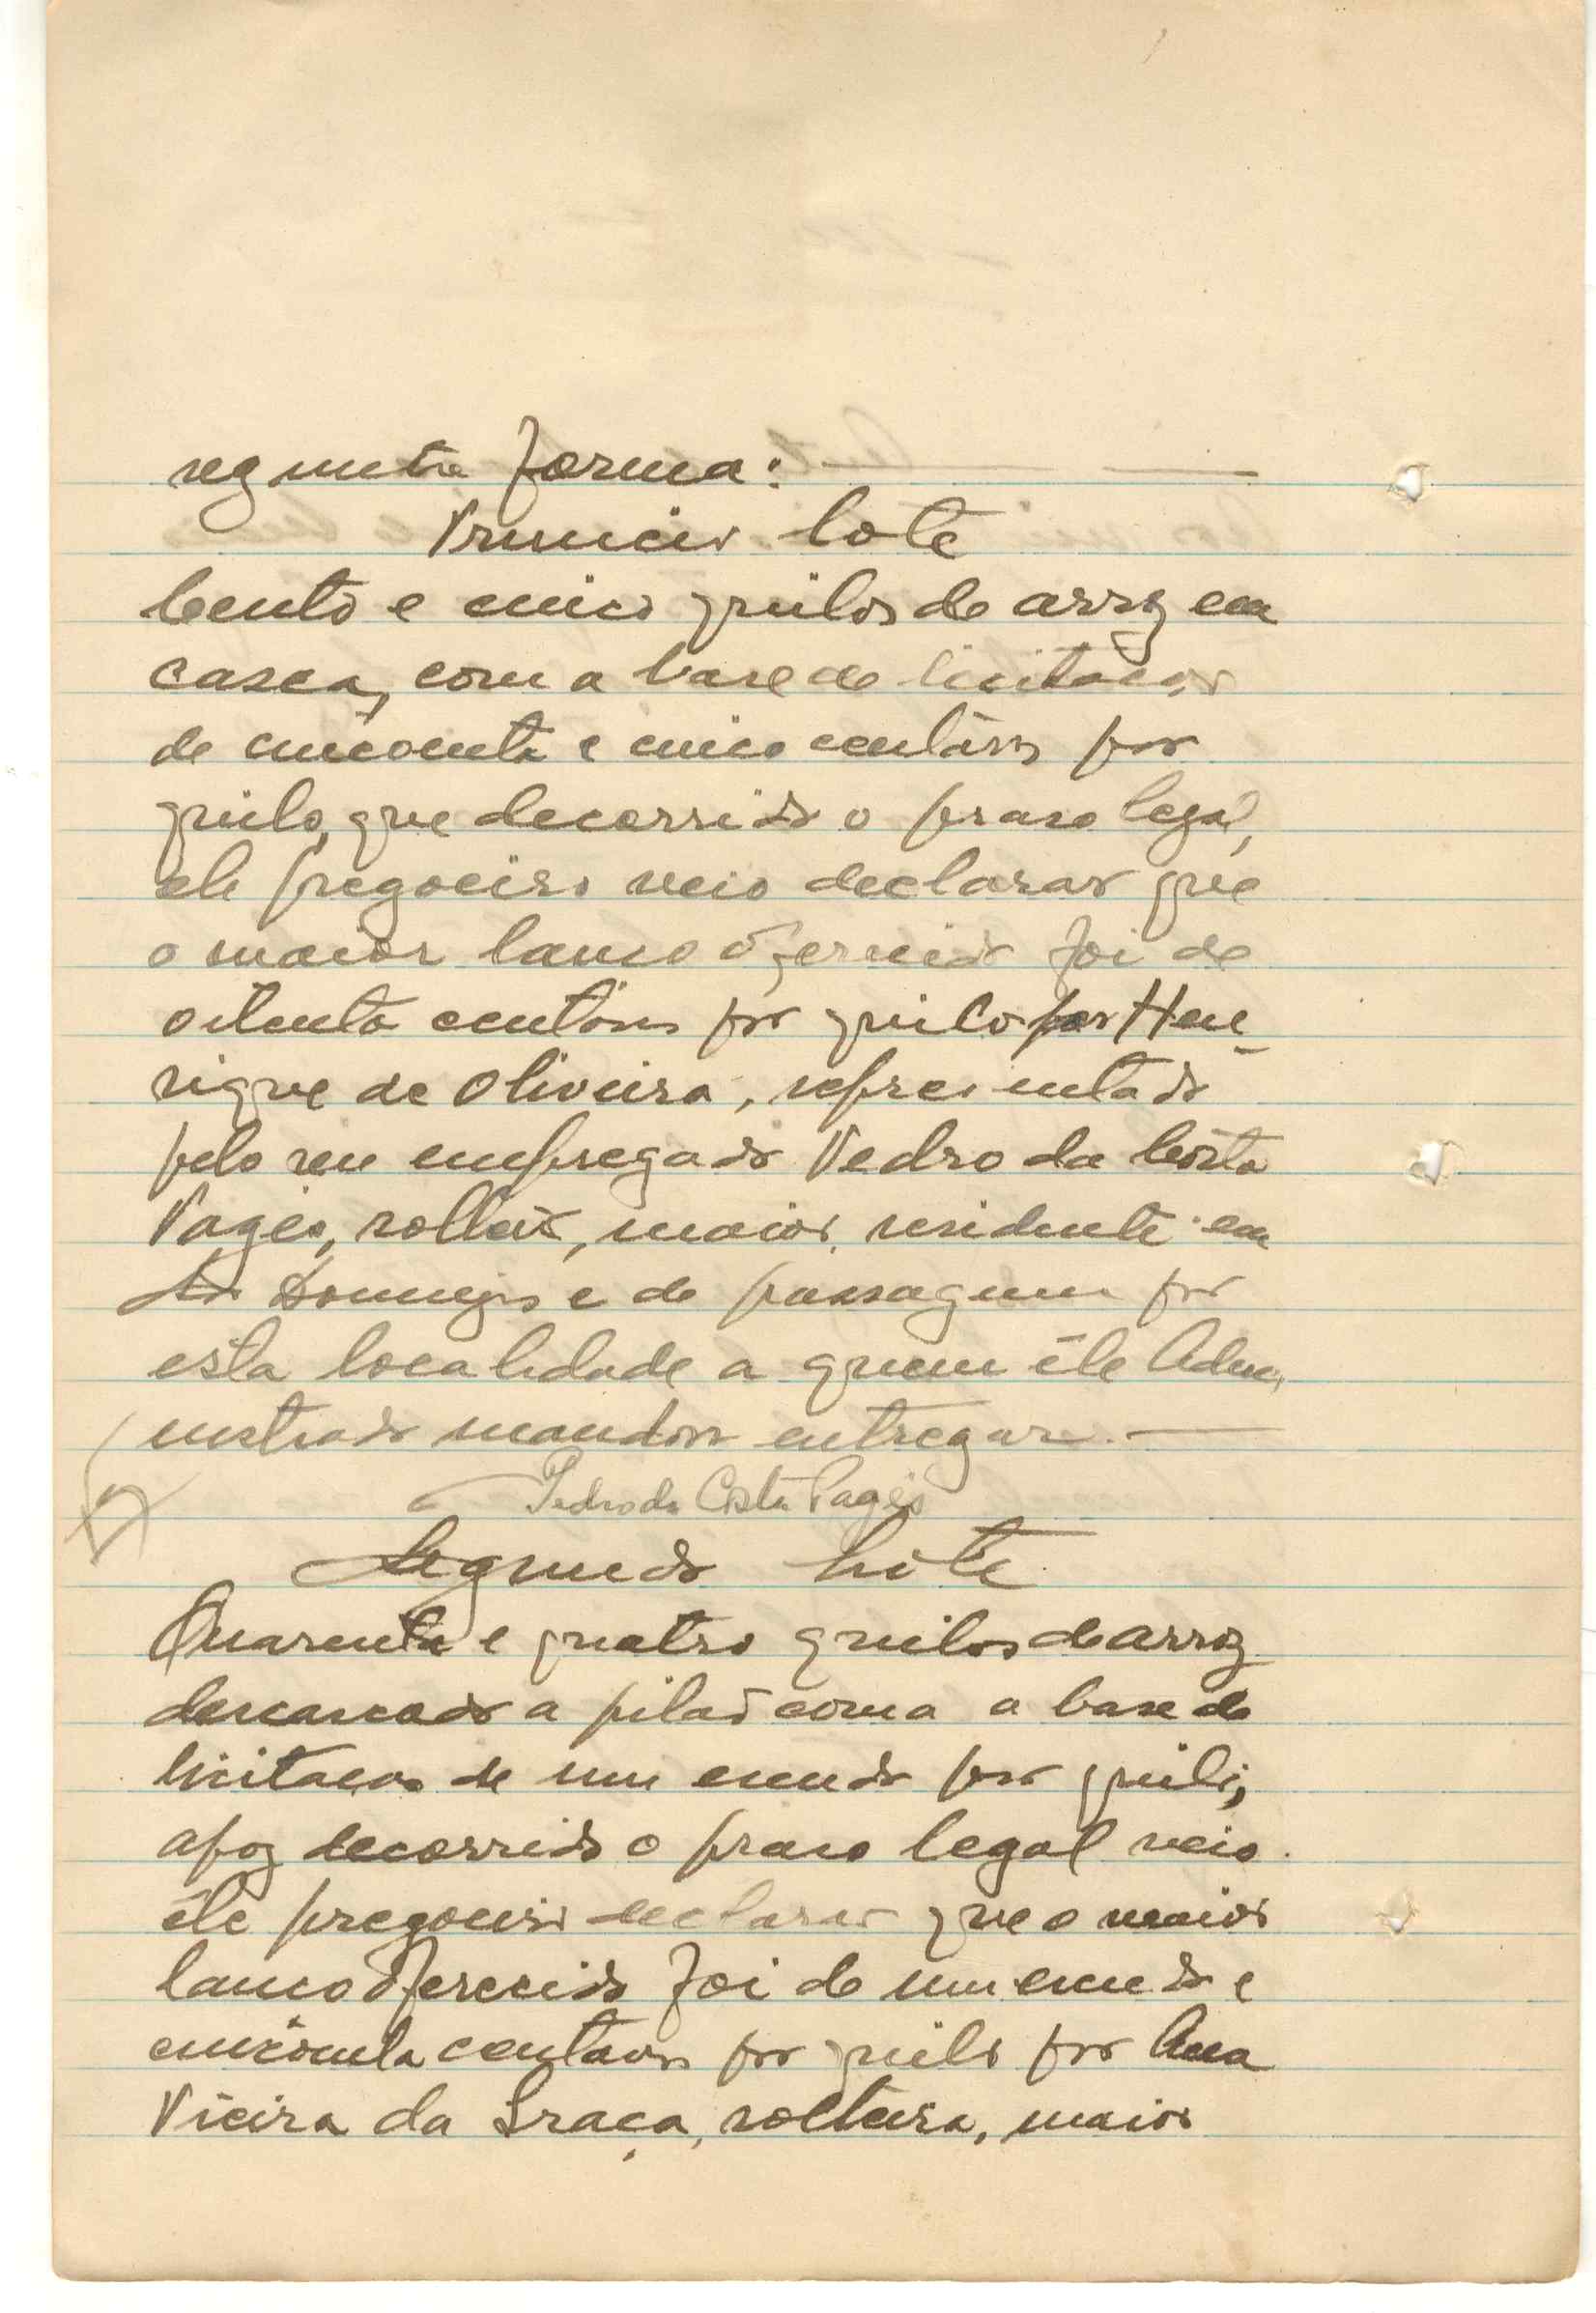 seguinte forma:
Primeiro lote
Cento e cinco quilos de arroz em
casca, com a base de licitação
de cincoenta e cinco centavos por
quilo, que decorrido o praso legal,
ele pregoeiro veio declarar que
o maior lanco oferecido foi de
oitenta centavos por quilo por Hen-
rique de Oliveira, representado
pelo seu empregado Pedro da Costa
Pagés, solteiro, maior, residente em
São Domingos e de passagem por
esta localidade a quem êle Admi,
nistrador mandou entregar.
Pedro da Costa Pagés
Segundo Lote
Quarenta e quatro quilos de arroz
descascado a pilão com a base de
licitacão de um escudo por quilo,
apoz decorrido o praso legal veio
êle pregoeiro declarar que o maior
lanco oferecido foi de um escudo e
cincoenta centavos por quilo por Ana
Vieira da Graça, solteira, maior